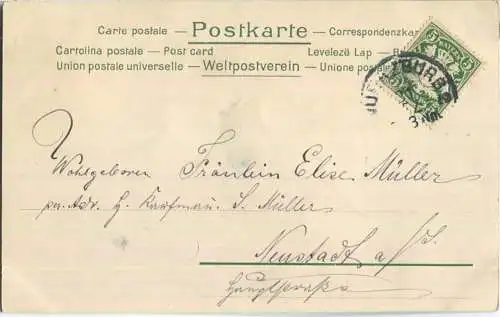 Carte postale — Postkarte — Correspondenzkar
Cartolina postale — Post card Levelezö Lap —
Union postale universelle — Weltpostverein — Unione postale
BAYERN
3 Nm
Wohlgeboren Fräulein Elise Müller
per Adr. H. Kaufman. S. Müller
Neustadt a/
Hauptstraße